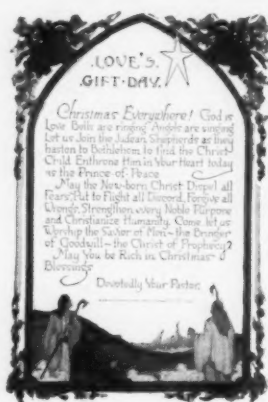 LOVE'S
GIFT-DAY.
Christmas Everywhere! God is
Love Bells are ringing Angels are singing
Let us Join the Judean Shepherds as they
hasten to Bethlehem to find the Christ-
Child Enthrone Him in Your Heart today
as the Prince of Peace
May the New-born Christ Dispel all
Fears, Put to Flight all Discord, Forgive all
Wrongs, Strengthen every Noble Purpose
and Christianize Humanity. Come let us
Worship the Savior of Men~the Bringer
of Goodwill~the Christ of Prophecy?
May You be Rich in Christmas
Blessings
Devotedly Your Pastor,